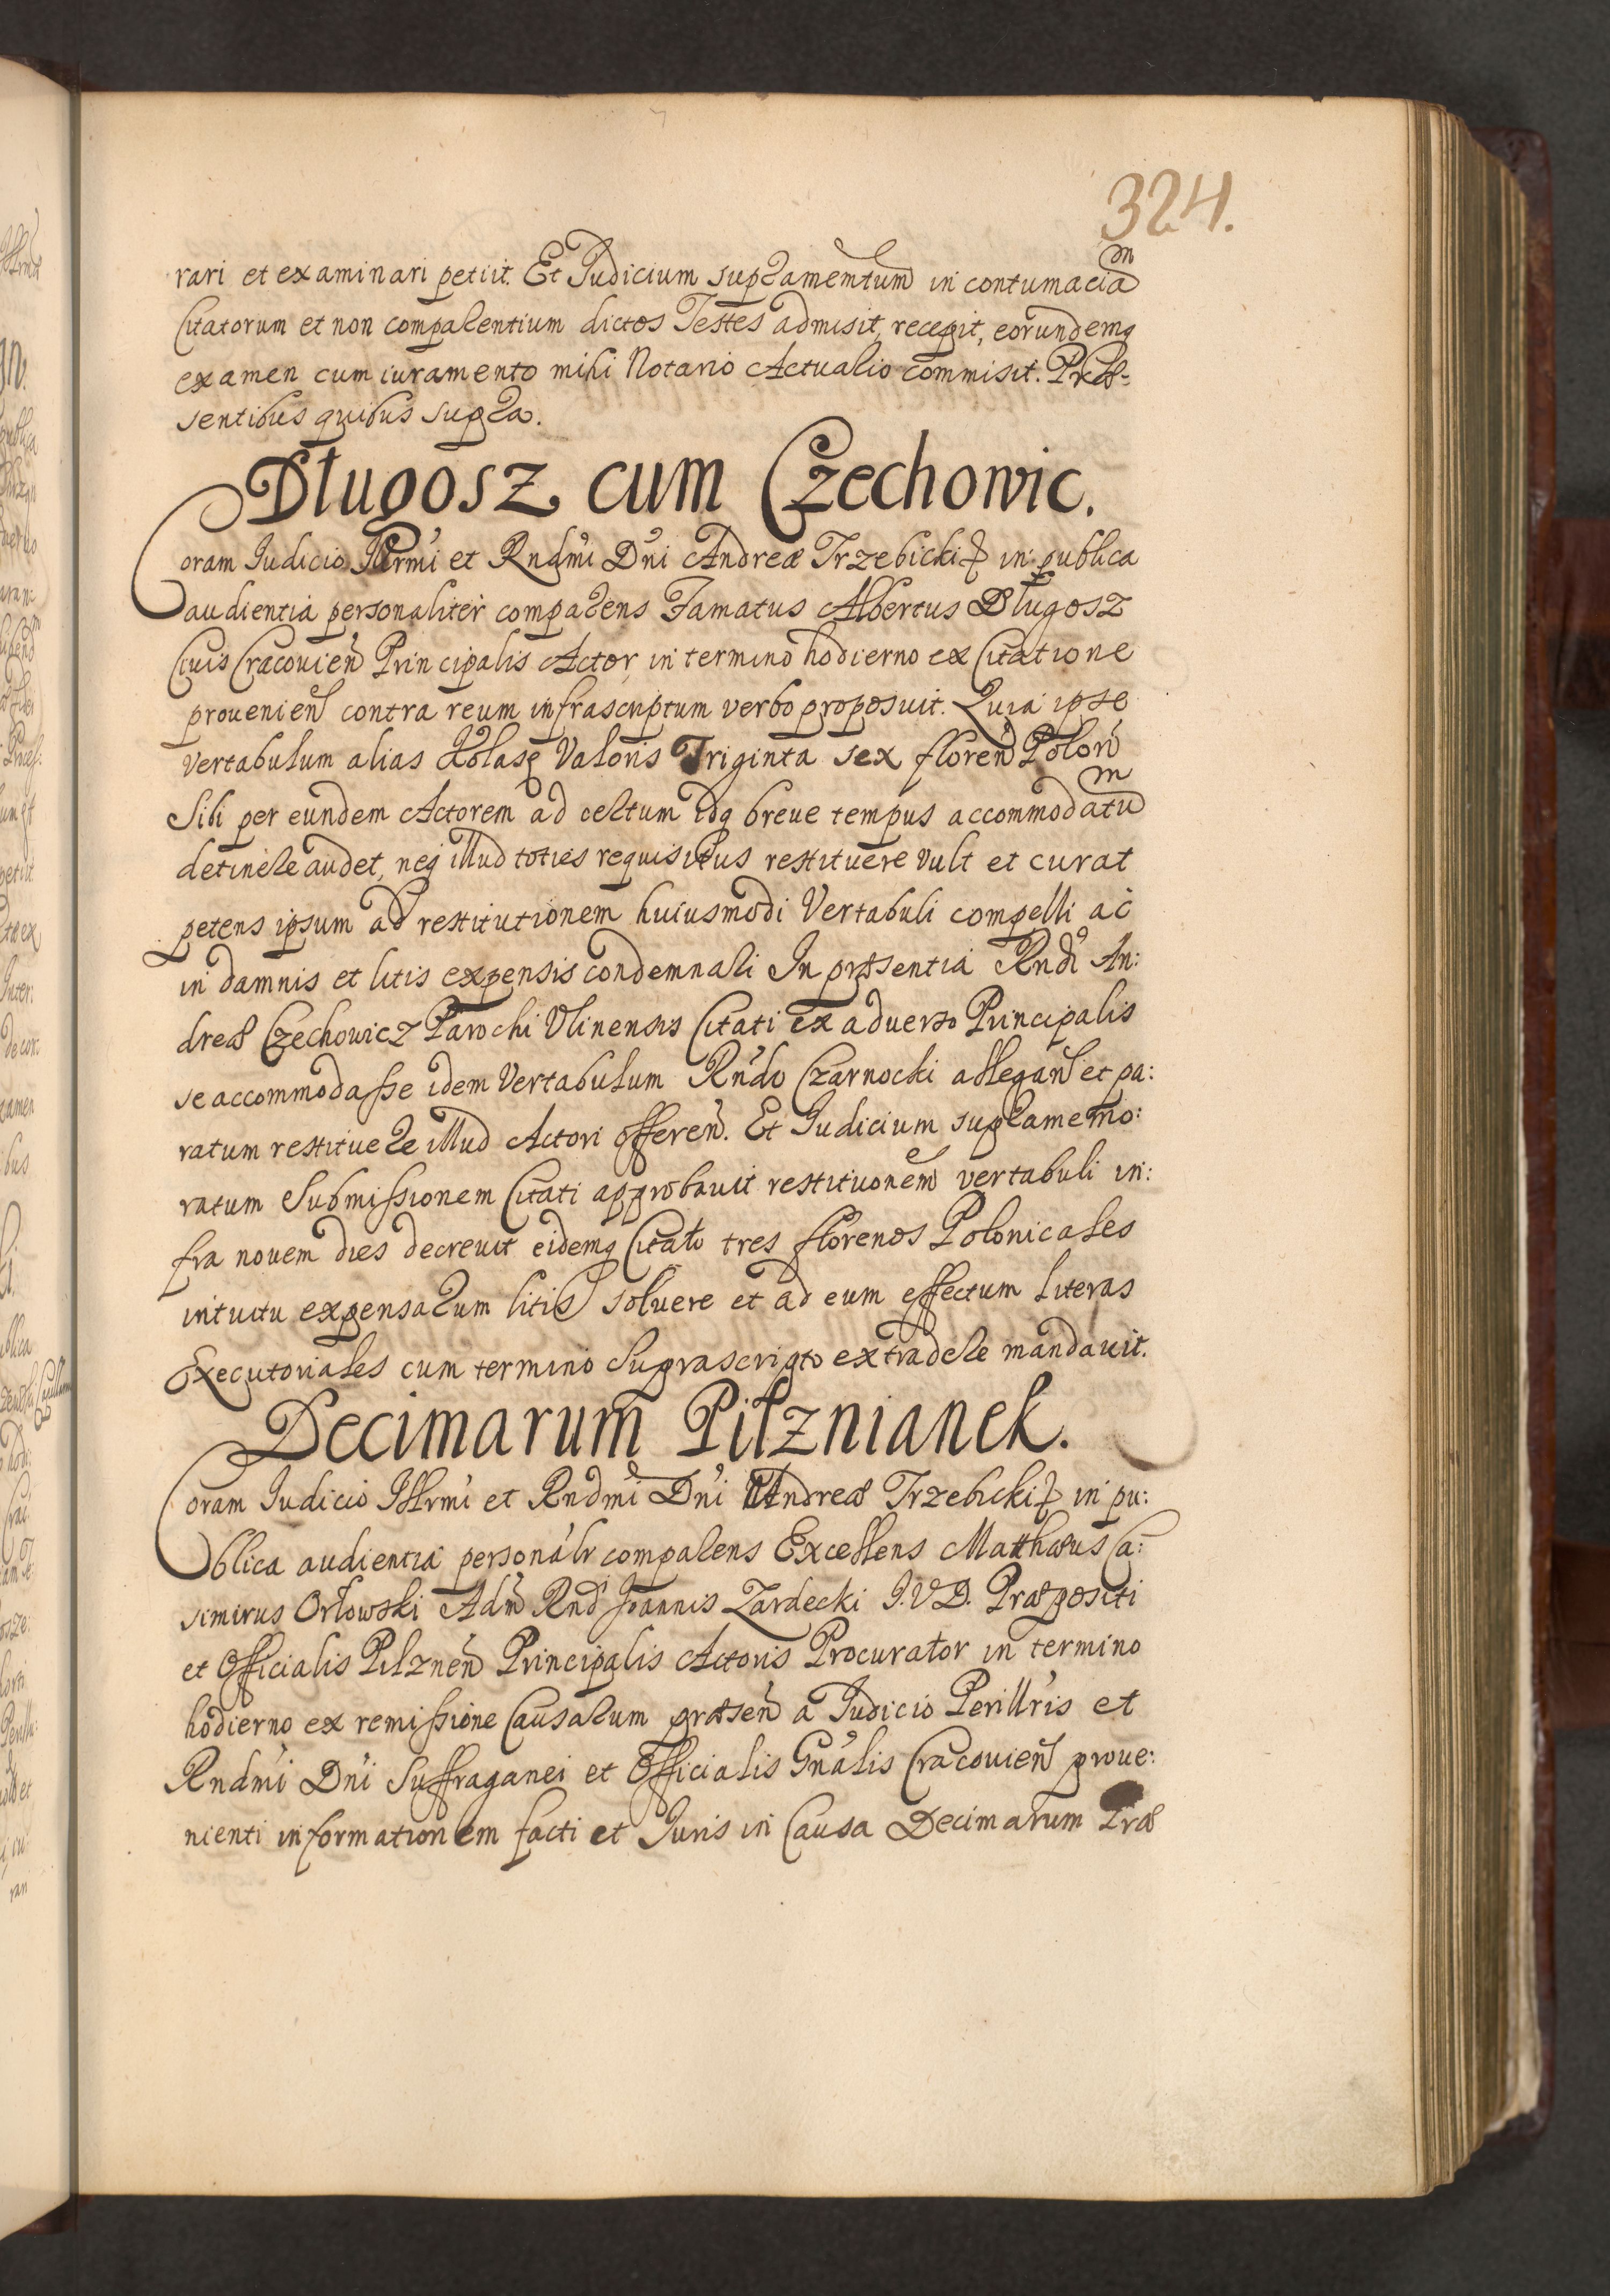 324.
rari et examinari petiit. Et Judicium supramemtum in contumaciam
Citatorum et non comparentium dictos Testes admisit, recepit, eorundemq
examen cum iuramento mihi Notario Actuario commisit. Præ-
sentibus quibus supra.
Długosz cum Czechowic.
Coram Judicio Illrmi et Rndmi Dni Andreæ Trzebicki in publica
audientia personaliter comparens Famatus Albertus Długosz
Civis Cracovien Principalis Actor, in termino hodierno ex Citatione
provenien contra reum infrascriptum verbo proposuit. Quia ipse
vertabulum alias Kolasę Valoris Triginta sex floren Polon
Sibi per eundem Actorem ad certum idq breve tempus accommodatum
detinere audet, neq illud toties requisitus restituere vult et curat
petens ipsum ad restitutionem huiusmodi Vertabuli compelli ac
in damnis et litis expensis condemnari In præsentia Rndi An:
dreæ Czechowicz Parochi Ulinensis Citati ex adverso Principalis
se accommodasse idem Vertabulum Rndo Czarnocki allegan et pa:
ratum restituere illud Actori offeren. Et Judicium supramemo:
ratum Submissionem Citati approbavit restitutionem vertabuli in:
fra novem dies decrevit eidemq Citato tres florenos Polonicales
intuitu expensarum litis solvere et ad eum effectum Literas
Executoriales cum termino Suprascripto extradere mandavit.
Decimarum Pilznianek.
Coram Judicio Illrmi et Rndmi Dni Andreæ Trzebicki in pu:
blica audientia personalr comparens Excellens Matthæus Ca:
simirus Orłowski Adm Rnd Joannis Zardecki J.V.D. Præpositi
et Officialis Pilznen Principalis Actoris Procurator in termino
hodierno ex remissione Causarum præsen a Judicio Perillris et
Rndmi Dni Suffraganei et Officialis Gnalis Cracovien prove:
nienti informationem facti et Juris in Causa Decimarum Præ